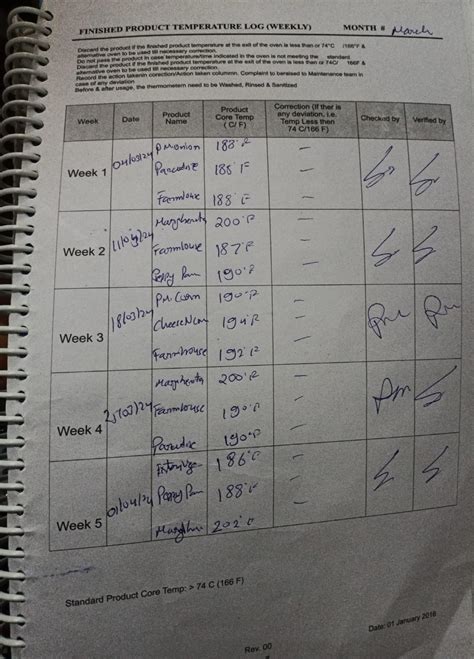 FINISHED PRODUCT TEMPERATURE LOG (WEEKLY) MONTH # March
Discard the product if the finished product temperature at the exit of the oven is less than or 74°C /166°F &
alternative oven to be used till necessary correction.
Do not pass the product in case temperature/time indicated in the oven is not meeting the standard
Discard the product if the finished product temperature at the exit of the oven is less than or 74C/ 166F &
alternative oven to be used till necessary correction.
Record the action taken/in correction/Action taken column. Complaint to be raised to Maintenance team in
case of any deviation
Before & after usage, the thermometer need to be Washed, Rinsed & Sanitized
Week Date Product Name Product Core Temp ( C/ F) Correction (If ther is any deviation, i.e. Temp Less then 74 C/166 F) Checked by Verified by
Week 1 04/03/24 P.M onion 183°F –
188°F –
Farmlouse 188°F –
Week 2 11/03/24 200°F –
Farmlouse 187F –
Peppy Pan 190°F –
Week 3 18/03/24 P.M. Corn 190°F –
Cheese N Corn 194°F –
Farmhouse 192°F –
Week 4 25/03/24 200°F –
Farmlouse 190°F –
Paradise 190°F –
Week 5 01/04/24 186°F –
Peppy Pan 188°F –
202°F –
Standard Product Core Temp: > 74 C (166 F)
Date: 01 January 2016
Rev. 00